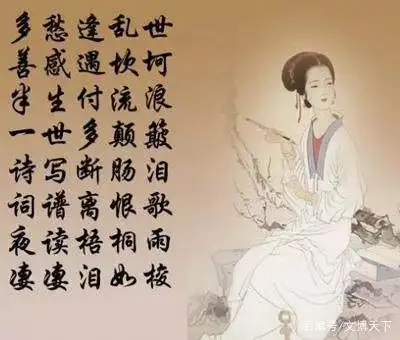 多愁逢乱世
善感遇坎坷
半生付流浪
一世多颠簸
诗写断肠泪
词谱离恨歌
夜读梧桐雨
凄凄泪如梭
号/文博天下